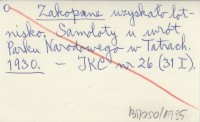 Zakopane uzyskało lot-
nisko. Samoloty u wrót
Parku Narodowego w Tatrach.
1930. – IKC nr 26 (31 I).